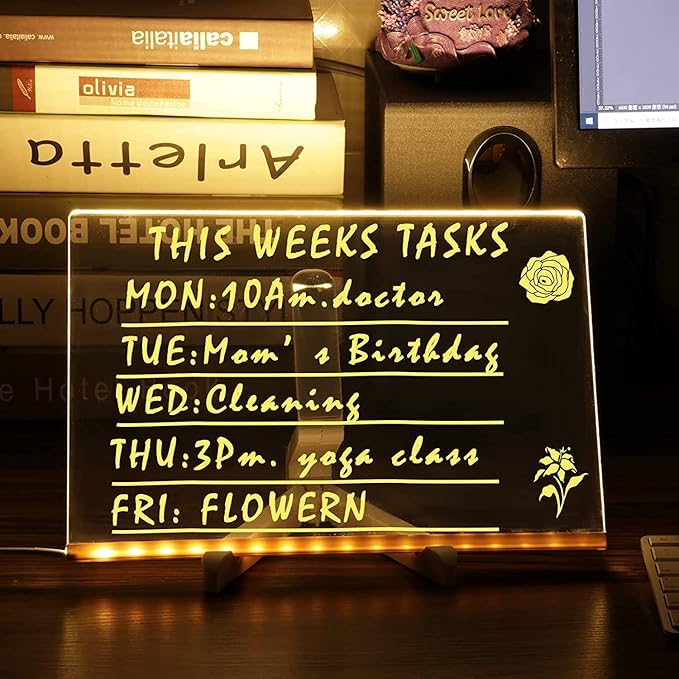 www.caliaitalia
caliaitalia
olivia
home decoration
Arletta
THE HOTEL BOOK
LLY HOPPEN
The Hotel
Sweet Love
THIS WEEKS TASKS
MON:10Am.doctor
TUE:Mom's Birthdag
WED:Cleaning
THU:3Pm. yoga class
FRI: FLOWERN